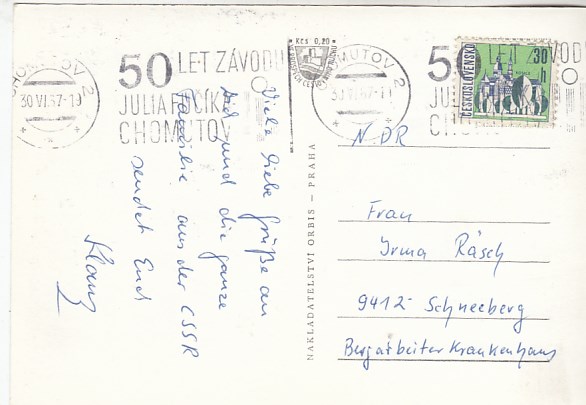 CHOMUTOV 2
30.VI.67-19
50 LET ZÁVODU
JULIA FUČÍKA
CHOMUTOV
Kčs 0,20
CHOMUTOV 2
30.VI.67
50 LET ZÁVODU
JU
CH
ČESKOSLOVENSKO
30 h
Viele liebe Grüße an
und die ganze
Familie aus der CSSR
sendet Euch
NAKLADATELSTVÍ ORBIS — PRAHA
NDR
Frau
Irma Räsch
9412 - Schneeberg
Bergarbeiter Krankenhaus